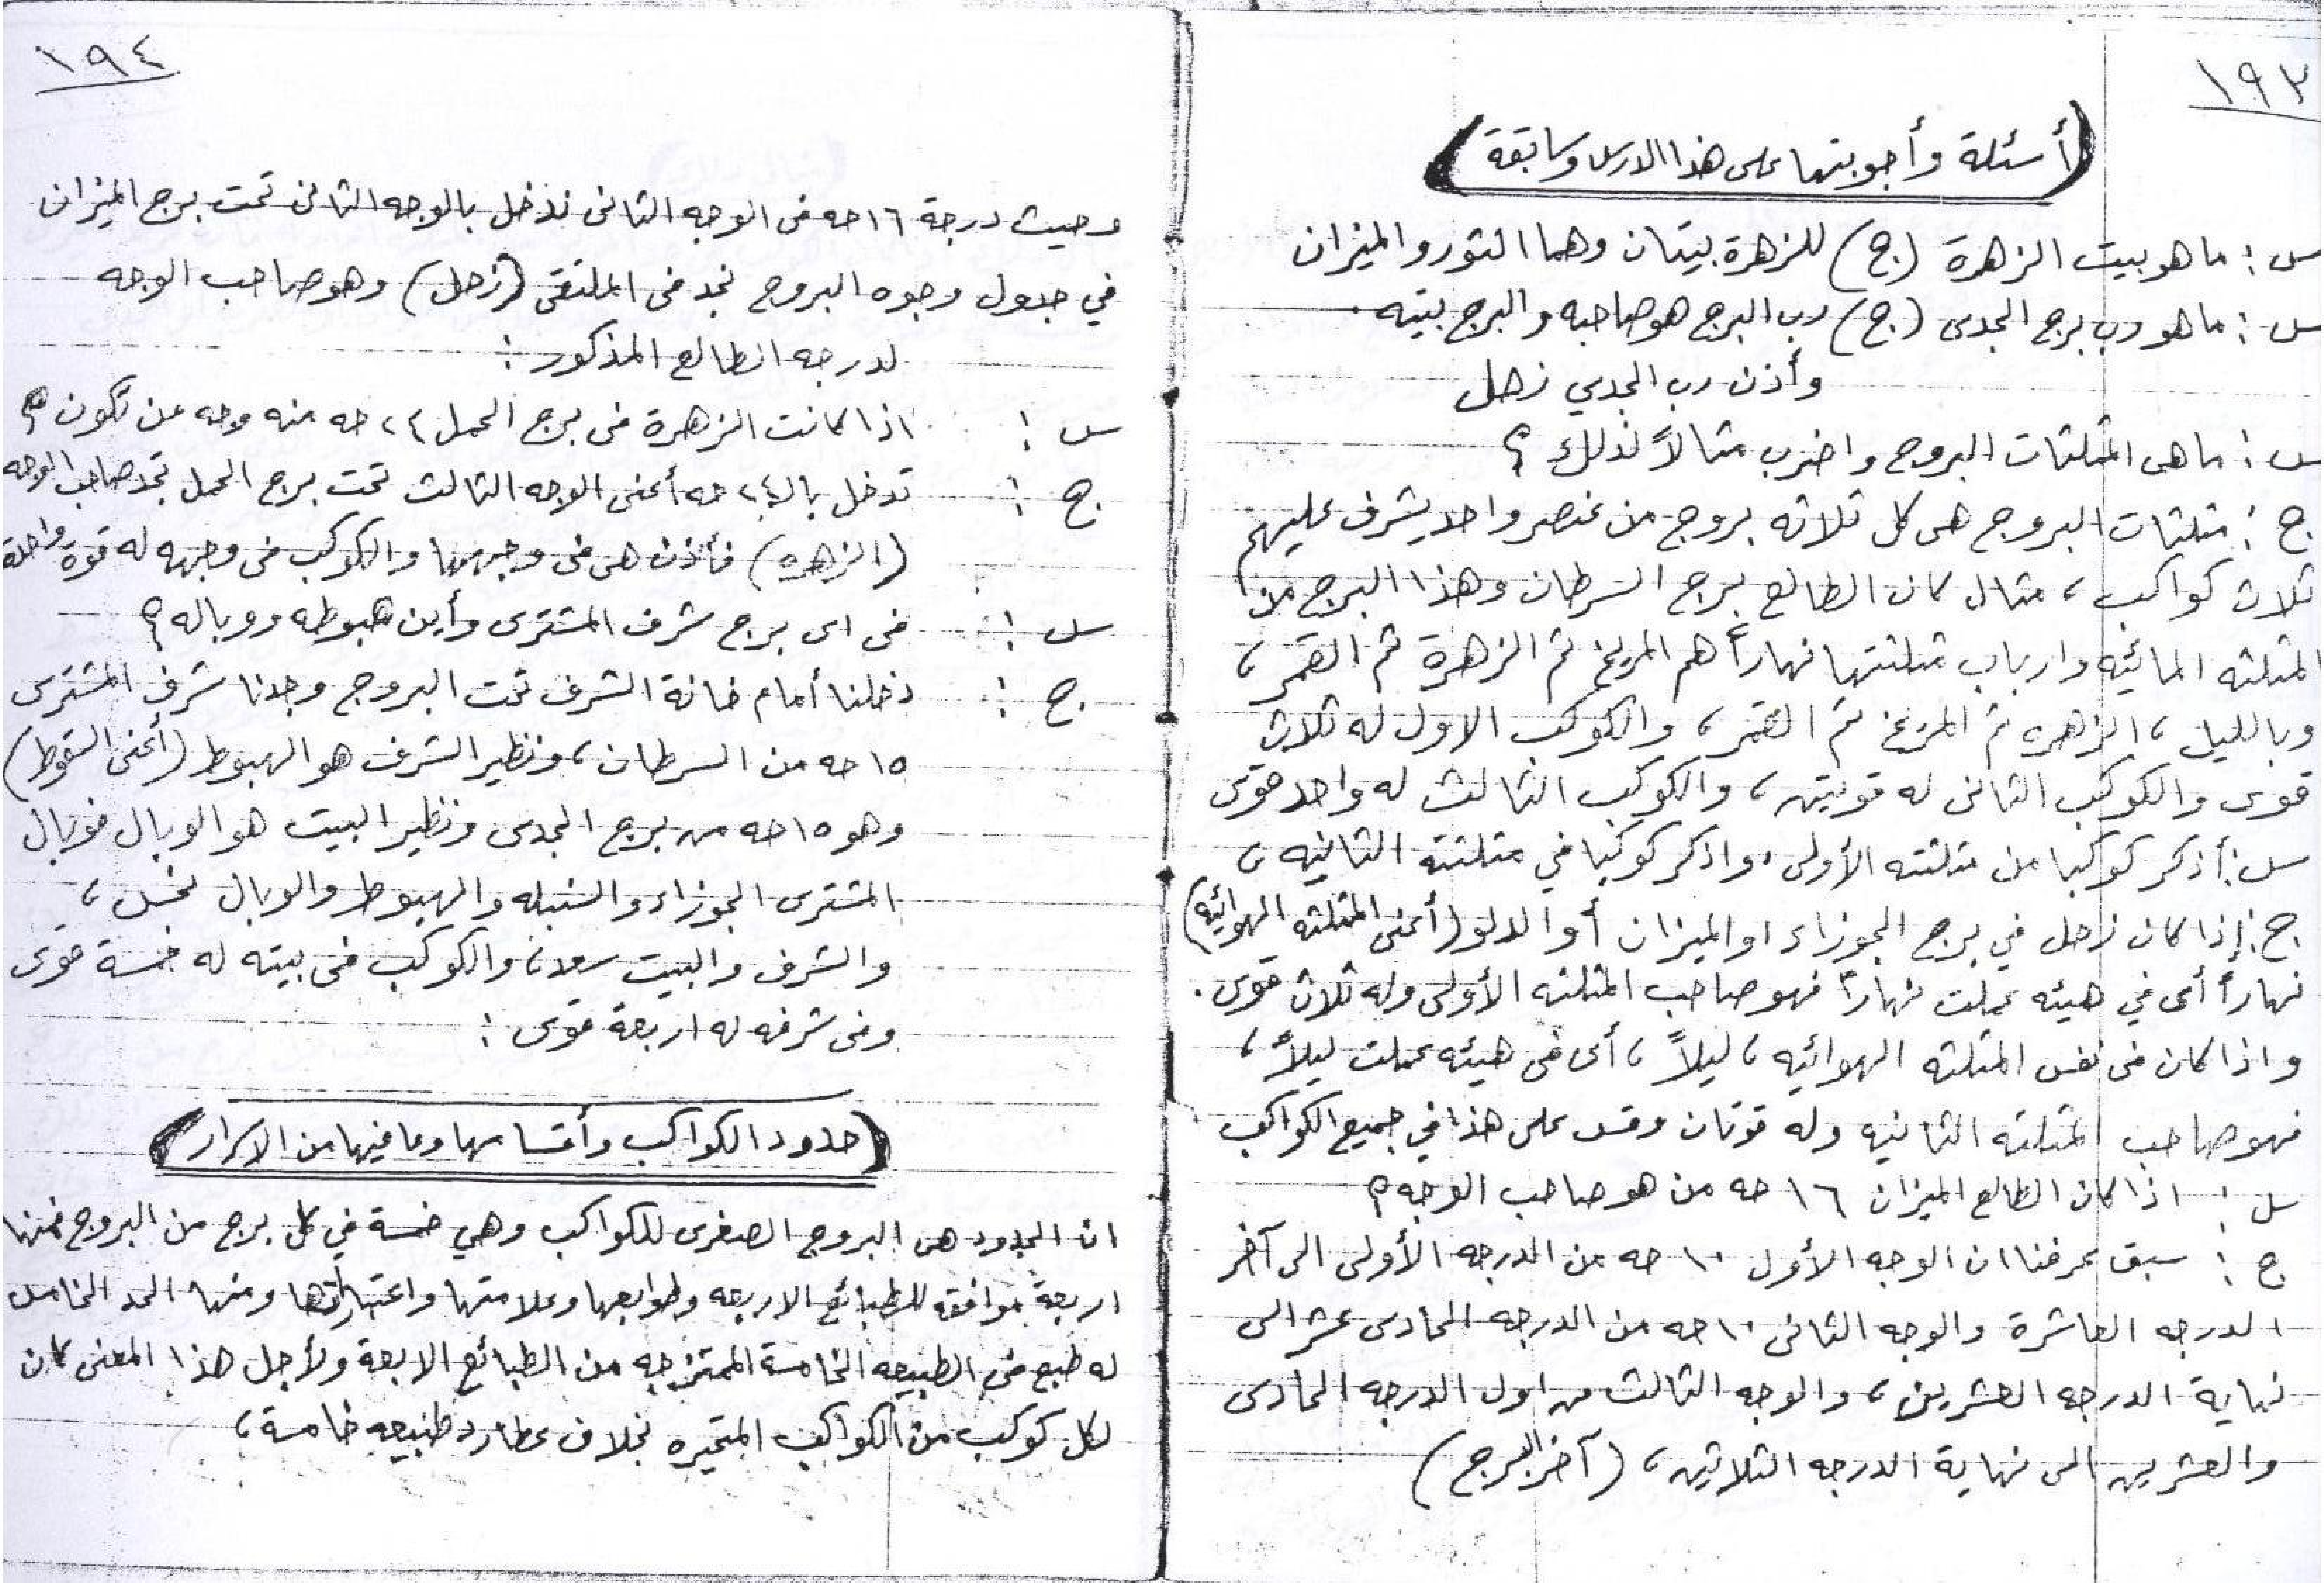 ١٩٣
(أسئلة وأجوبتها على هذا الدرس وسابقة)
س : ما هو بيت الزهرة (ج) للزهرة بيتان وهما الثور والميزان
س : ما هو رب برج الجدى (ج) رب البرج هو صاحبه والبرج بيته .
وأذن رب الجدي زحل
س : ما هى المثلثات البروج واضرب مثالاً لذلك ؟
ج : مثلثات البروج هى كل ثلاثه بروج من عنصر واحد يشرف عليهم
ثلاث كواكب ، مثال كان الطالع برج السرطان وهذا البرج من
المثلثه المائيه وارباب مثلثتها نهاراً هم المريخ ثم الزهرة ثم القمر ،
وبالليل ، الزهره ثم المريخ ثم القمر ، والكوكب الاول له ثلاث
قوى والكوكب الثانى له قوتين ، والكوكب الثالث له واحد قوى
س : أذكر كوكبا من مثلثته الأولى . واذكر كوكبا في مثلثته الثانيه ،
ج : إذا كان زحل في برج الجوزاء او الميزان أو الدلو (أعنى المثلثه الهوائيه)
نهاراً أى في هيئه عملت نهاراً فهو صاحب المثلثه الأولى وله ثلاث قوى .
واذا كان فى نفس المثلثه الهوائيه ، ليلاً ، أى فى هيئه عملت ليلاً ،
فهو صاحب المثلثه الثانيه وله قوتان وقس على هذا في جميع الكواكب
س : اذا كان الطالع الميزان ١٦ حه من هو صاحب الوجه ؟
ج : سبق عرفنا ان الوجه الأول ١٠ حه من الدرجه الأولى الى آخر
الدرجه العاشرة والوجه الثانى ١٠ حه من الدرجه الحادى عشر الى
نهاية الدرجه العشرين ، والوجه الثالث من اول الدرجه الحادى
والعشرين الى نهاية الدرجه الثلاثين ، (آخر البرج)
١٩٤
وحيث درجة ١٦ حه فى الوجه الثانى ندخل بالوجه الثانى تحت برج الميزان
في جدول وجوه البروج نجد فى الملتقى (زحل) وهو صاحب الوجه
لدرجه الطالع المذكور :
س : اذا كانت الزهرة فى برج الحمل ٢٤ حه منه وجه من تكون ؟
ج : تدخل بالـ ٢٤ حه أعنى الوجه الثالث تحت برج الحمل تجد صاحب الوجه
(الزهره) فأذن هى فى وجهها والكوكب فى وجهه له قوة واحدة
س : فى اى برج شرف المشترى وأين هبوطه ووباله ؟
ج : دخلنا أمام خانة الشرف تحت البروج وجدنا شرف المشترى
١٥ حه من السرطان ، ونظير الشرف هو الهبوط (أعنى السقوط)
وهو ١٥ حه من برج الجدى ونظير البيت هو الوبال فوبال
المشترى الجوزاء والسنبله والهبوط والوبال نحس ،
والشرف والبيت سعد ، والكوكب فى بيته له خمسة قوى
وفى شرفه له اربعة قوى :
(حدود الكواكب وأقسامها وما فيها من الاسرار)
ان الحدود هى البروج الصغرى للكواكب وهي خمسة في كل برج من البروج فمنها
اربعة موافقه للطبائع الاربعه وطوابعها وعلامتها واعتباراتها ومنها الحد الخامس
له طبع فى الطبيعه الخامسة الممتزجه من الطبائع الابعة ولأجل هذا المعنى كان
لكل كوكب من الكواكب المتحيره بخلاف عطارد طبيعه خامسة ،